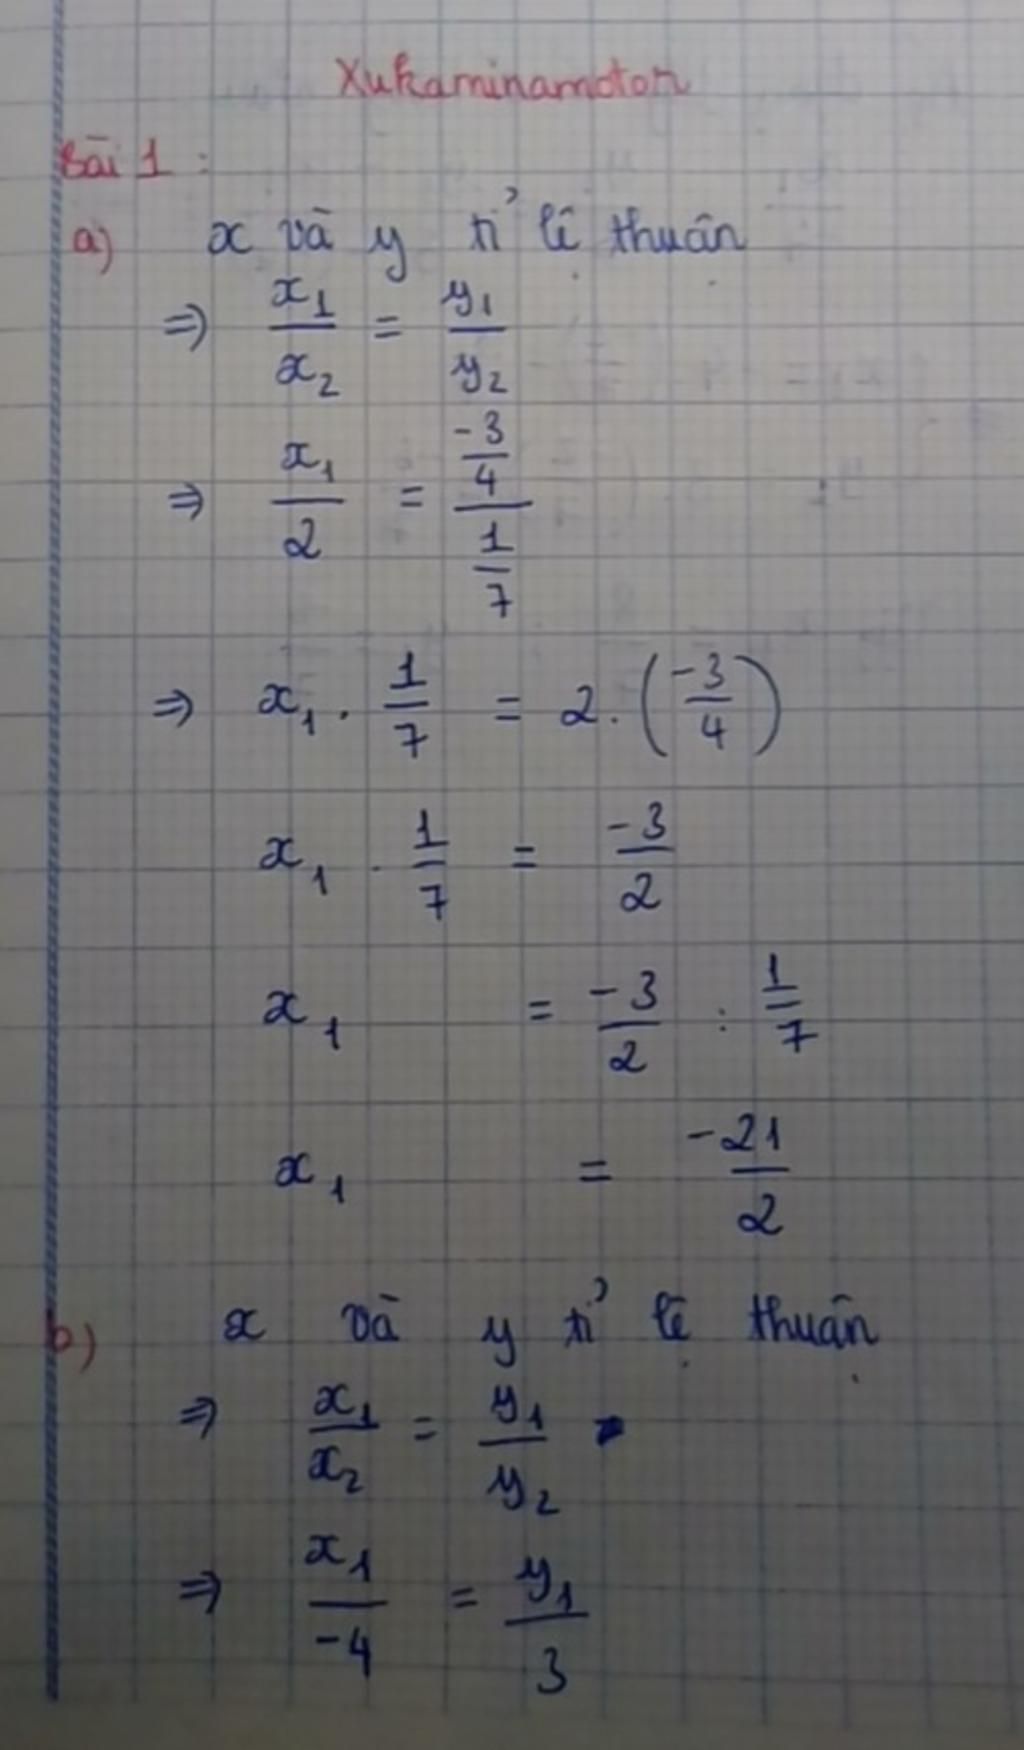 Xukaminamoton
Bài 1 :
a) x và y tỉ lệ thuận
⇒ x₁/x₂ = y₁/y₂
⇒ x₁/2 = (-3/4)/(1/7)
⇒ x₁ . 1/7 = 2 . (-3/4)
x₁ . 1/7 = -3/2
x₁ = -3/2 : 1/7
x₁ = -21/2
b) x và y tỉ lệ thuận
⇒ x₁/x₂ = y₁/y₂
⇒ x₁/-4 = y₁/3